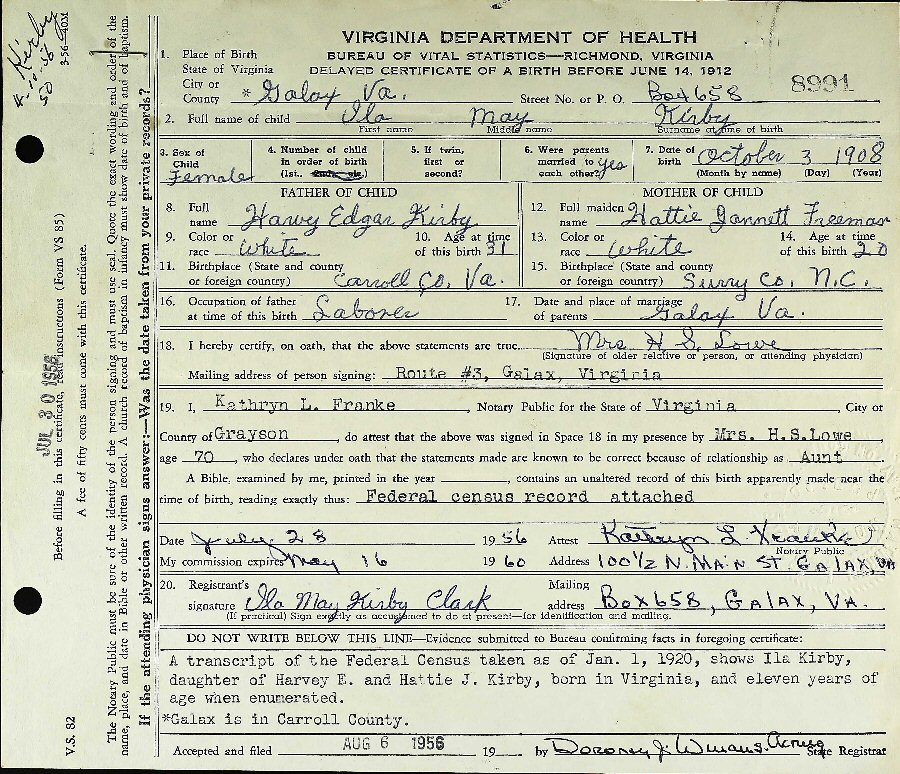 VIRGINIA DEPARTMENT OF HEALTH
BUREAU OF VITAL STATISTICS—RICHMOND, VIRGINIA
DELAYED CERTIFICATE OF A BIRTH BEFORE JUNE 14, 1912
8991
1. Place of Birth
State of Virginia
City or
County * Galax Va. Street No. or P. O. Box 658
2. Full name of child Ila May Kirby
First name Middle name Surname at time of birth
3. Sex of Child Female
4. Number of child in order of birth (1st, 2nd, etc.)
5. If twin, first or second?
6. Were parents married to each other? Yes
7. Date of birth October 3 1908
(Month by name) (Day) (Year)
FATHER OF CHILD
8. Full name Harvy Edgar Kirby
9. Color or race White 10. Age at time of this birth 31
11. Birthplace (State and county or foreign country) Carroll Co, Va.
MOTHER OF CHILD
12. Full maiden name Hattie Jannett Freeman
13. Color or race White 14. Age at time of this birth 20
15. Birthplace (State and county or foreign country) Surry Co. N.C.
16. Occupation of father at time of this birth Laborer
17. Date and place of marriage of parents Galax Va.
18. I hereby certify, on oath, that the above statements are true. Mrs H S. Lowe
(Signature of older relative or person, or attending physician)
Mailing address of person signing: Route #3, Galax, Virginia
19. I, Kathryn L. Franke, Notary Public for the State of Virginia, City or
County of Grayson, do attest that the above was signed in Space 18 in my presence by Mrs. H.S.Lowe,
age 70, who declares under oath that the statements made are known to be correct because of relationship as Aunt.
A Bible, examined by me, printed in the year , contains an unaltered record of this birth apparently made near the
time of birth, reading exactly thus: Federal census record attached
Date July 28 1956 Attest Kathryn L Franke
Notary Public
My commission expires May 16 1960 Address 100½ N. Main St. Galax, Va
20. Registrant's signature Ila May Kirby Clark Mailing address Box 658, Galax, Va.
(If practical) Sign exactly as accustomed to do at present—for identification and mailing.
DO NOT WRITE BELOW THIS LINE—Evidence submitted to Bureau confirming facts in foregoing certificate:
A transcript of the Federal Census taken as of Jan. 1, 1920, shows Ila Kirby,
daughter of Harvey E. and Hattie J. Kirby, born in Virginia, and eleven years of
age when enumerated.
*Galax is in Carroll County.
Accepted and filed AUG 6 1956 19 by Dorothy J. Winans. Acting
State Registrar
Kirby
3-56-50M
V.S. 82
JUL 30 1956
Before filling in this certificate, read instructions (Form VS 85)
A fee of fifty cents must come with this certificate.
The Notary Public must be sure of the identity of the person signing and must use seal. Quote the exact wording and order of the
name, place, and date in Bible or other written record. A church record of baptism in infancy must show date of birth and of baptism.
If the attending physician signs answer:—Was the date taken from your private records?